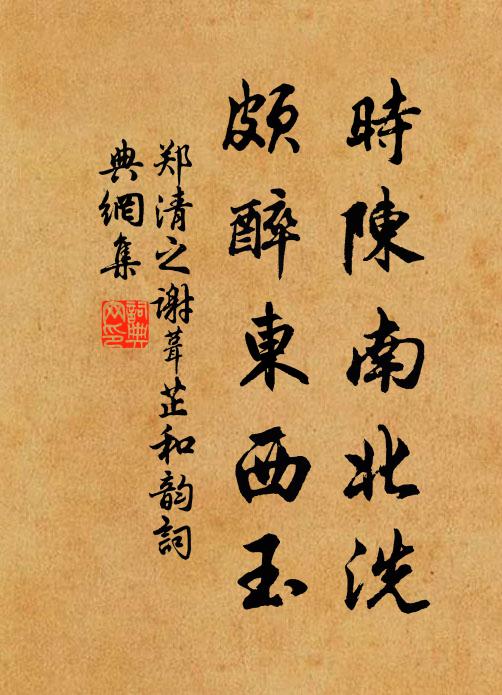 時陳南北洗
頗醉东西玉
郑清之谢葺芷和韵詞
典網集
詞典
网印